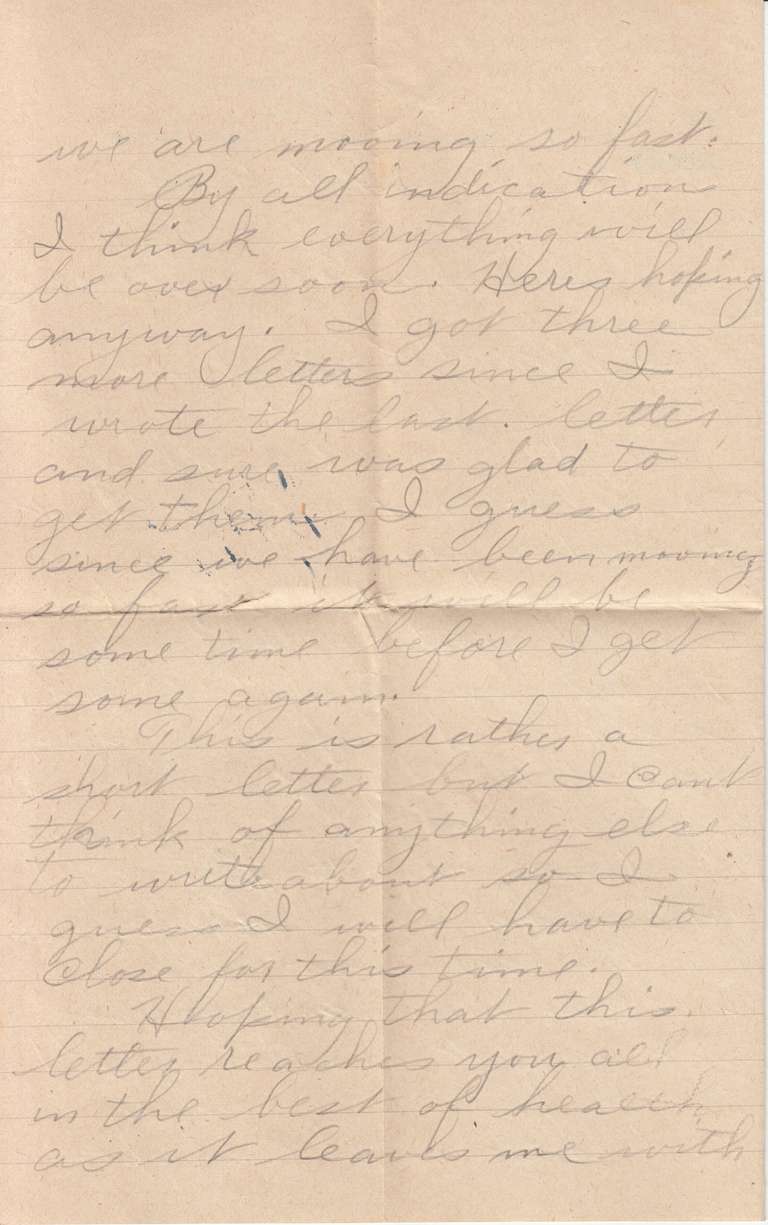 we are mooving so fast.
By all indication
I think everything will
be over soon. Heres hoping
anyway. I got three
more letters since I
wrote the last. letter
and sure was glad to
get them. I guess
since we have been mooving
so fast it will be
some time before I get
some again.
This is rather a
short letter but I cant
think of anything else
to write about so I
guess I will have to
close for this time.
Hooping that this
letter reaches you all
in the best of health
as it leaves me with